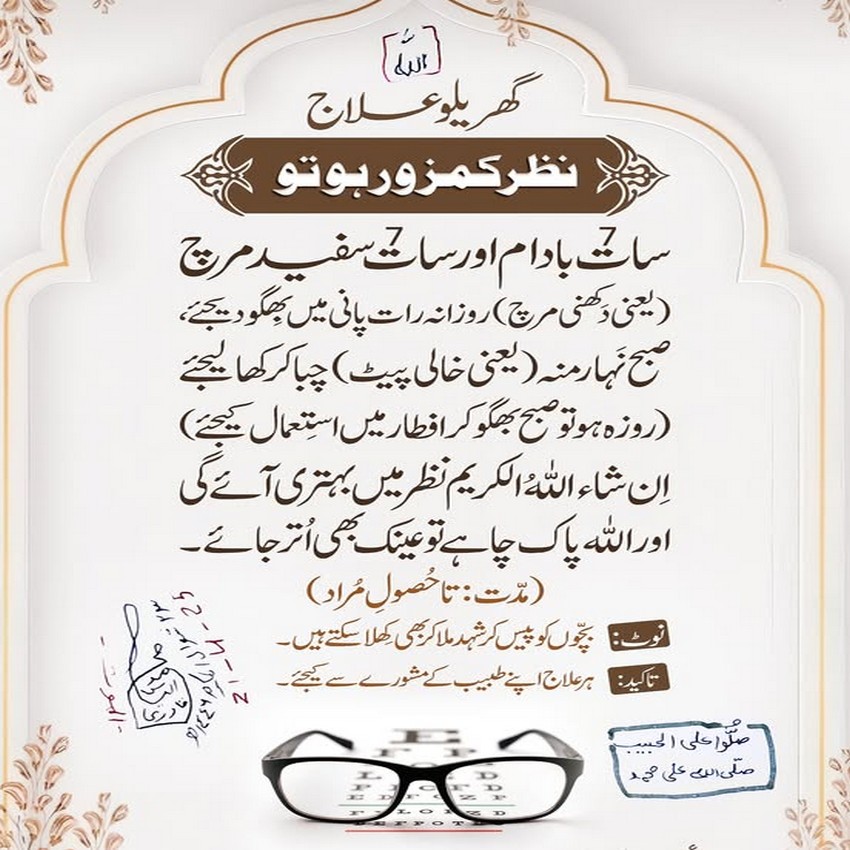 اللہ
گھریلو علاج
نظر کمزور ہو تو
سات 7 بادام اور سات 7 سفید مرچ
(یعنی دَکھنی مرچ) روزانہ رات پانی میں بھِگو دیجئے،
صبح نَہار منہ (یعنی خالی پیٹ) چبا کر کھا لیجئے
(روزہ ہو تو صبح بھگو کر افطار میں استِعمال کیجئے)
اِن شاء اللہُ الکریم نظر میں بہتری آئے گی
اور اللہ پاک چاہے تو عینک بھی اُتر جائے۔
(مدّت: تا حُصولِ مُراد)
نوٹ: بچّوں کو پیس کر شہد ملا کر بھی کھلا سکتے ہیں۔
تاکید: ہر علاج اپنے طبیب کے مشورے سے کیجئے۔
صلُّوا علی الحبیب
صلّی اللہ علی محمد
E
F P